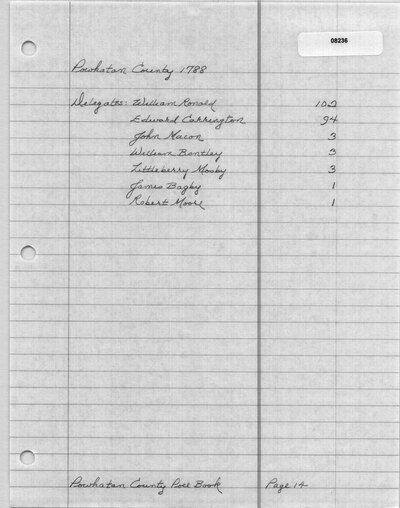 08236
Powhatan County 1788
Delegates: William Ronald 102
Edward Carrington 94
John Macon 3
William Bentley 3
Littleberry Mosby 3
James Bagby 1
Robert Moore 1
Powhatan County Poll Book Page 14